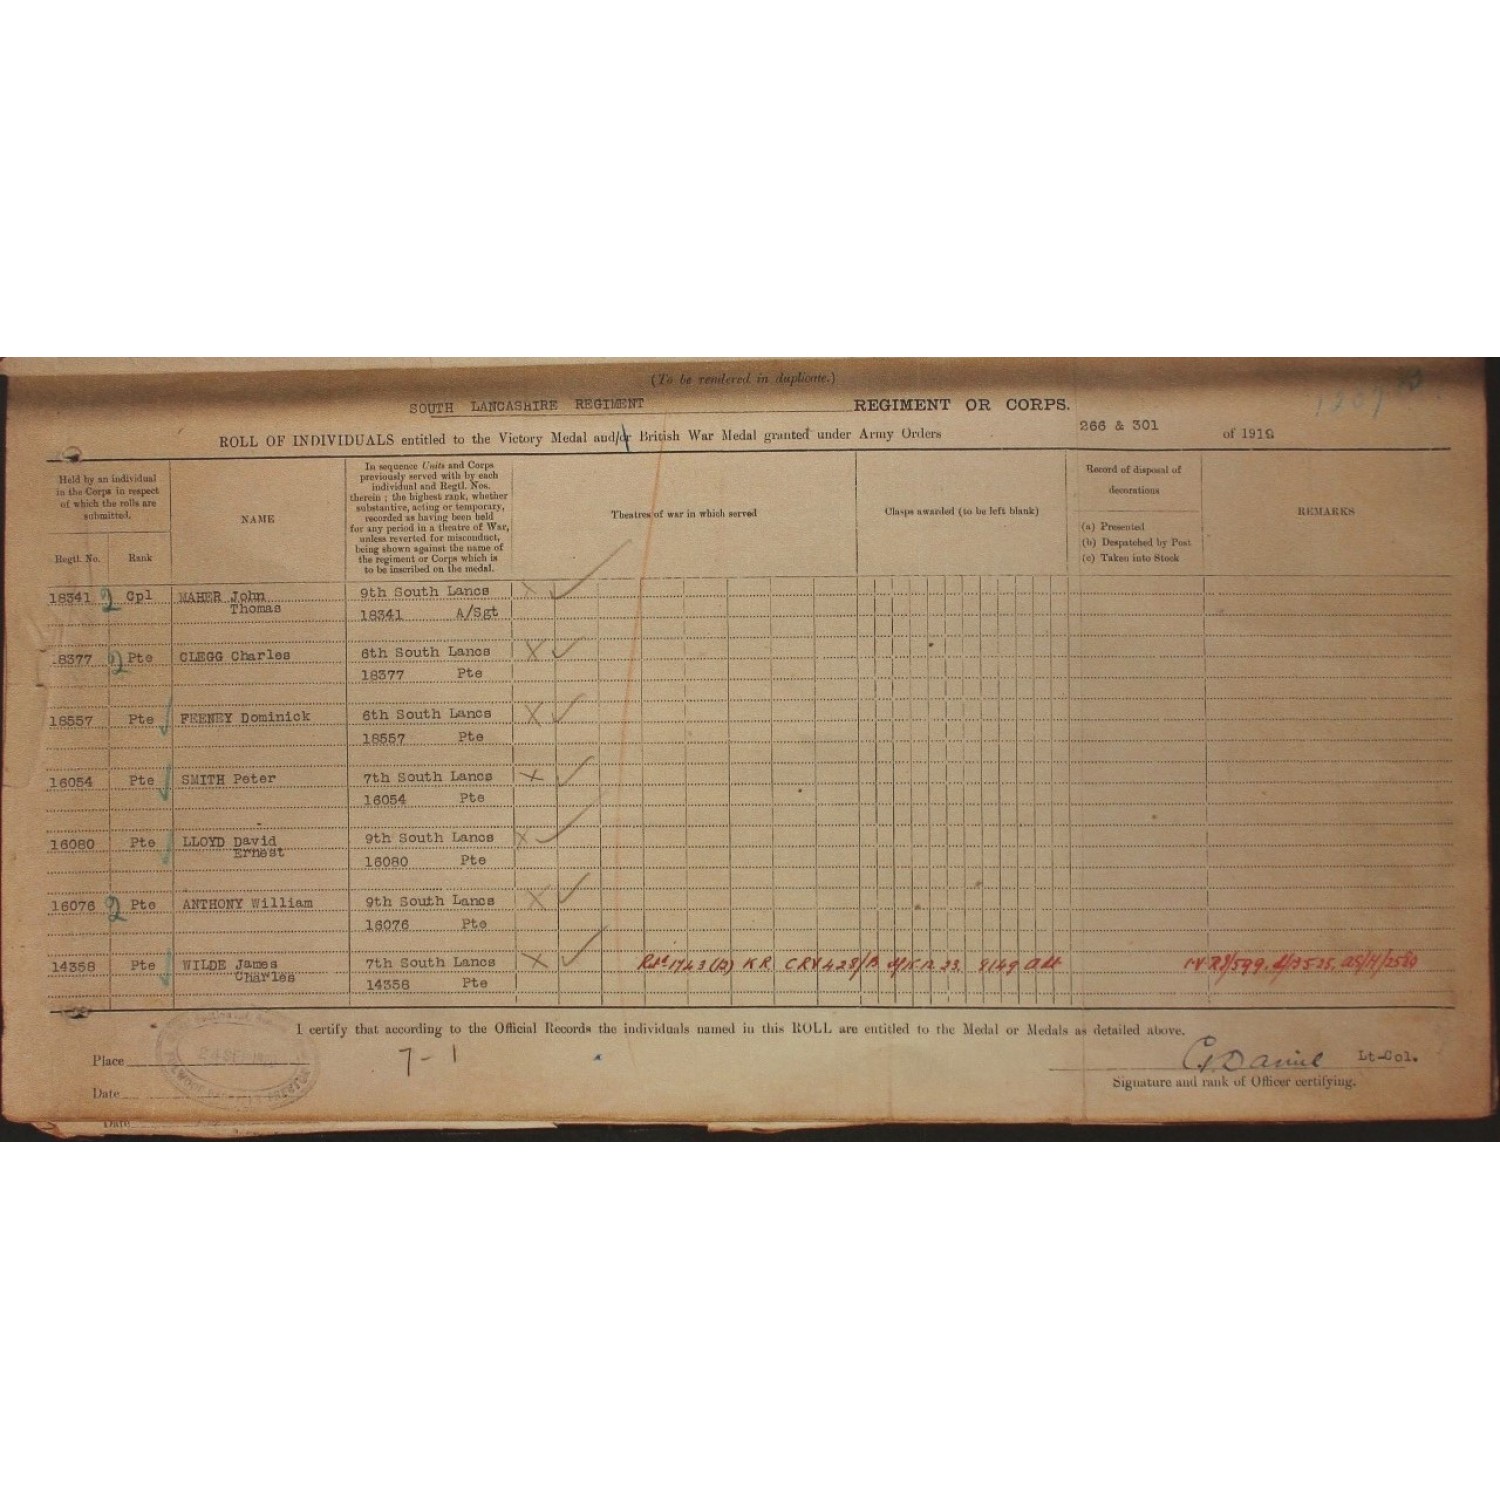 (To be rendered in duplicate.)
SOUTH LANCASHIRE REGIMENT REGIMENT OR CORPS.
ROLL OF INDIVIDUALS entitled to the Victory Medal and/or British War Medal granted under Army Orders 266 & 301 of 1919
Held by an individual
in the Corps in respect
of which the rolls are
submitted.
Regtl. No. Rank
NAME
In sequence Units and Corps
previously served with by each
individual and Regtl. Nos.
therein ; the highest rank, whether
substantive, acting or temporary,
recorded as having been held
for any period in a theatre of War,
unless reverted for misconduct,
being shown against the name of
the regiment or Corps which is
to be inscribed on the medal.
Theatres of war in which served
Clasps awarded (to be left blank)
Record of disposal of
decorations
(a) Presented
(b) Despatched by Post
(c) Taken into Stock
REMARKS
18341 2 Cpl MAHER John 9th South Lancs
Thomas 18341 A/Sgt
18377 2 Pte CLEGG Charles 6th South Lancs
18377 Pte
18557 Pte FEENEY Dominick 6th South Lancs
18557 Pte
16054 Pte SMITH Peter 7th South Lancs
16054 Pte
16080 Pte LLOYD David 9th South Lancs
Ernest 16080 Pte
16076 2 Pte ANTHONY William 9th South Lancs
16076 Pte
14358 Pte WILDE James 7th South Lancs
Charles 14358 Pte
I certify that according to the Official Records the individuals named in this ROLL are entitled to the Medal or Medals as detailed above.
Place 7-1 Lt-Col.
Signature and rank of Officer certifying.
Date
Date